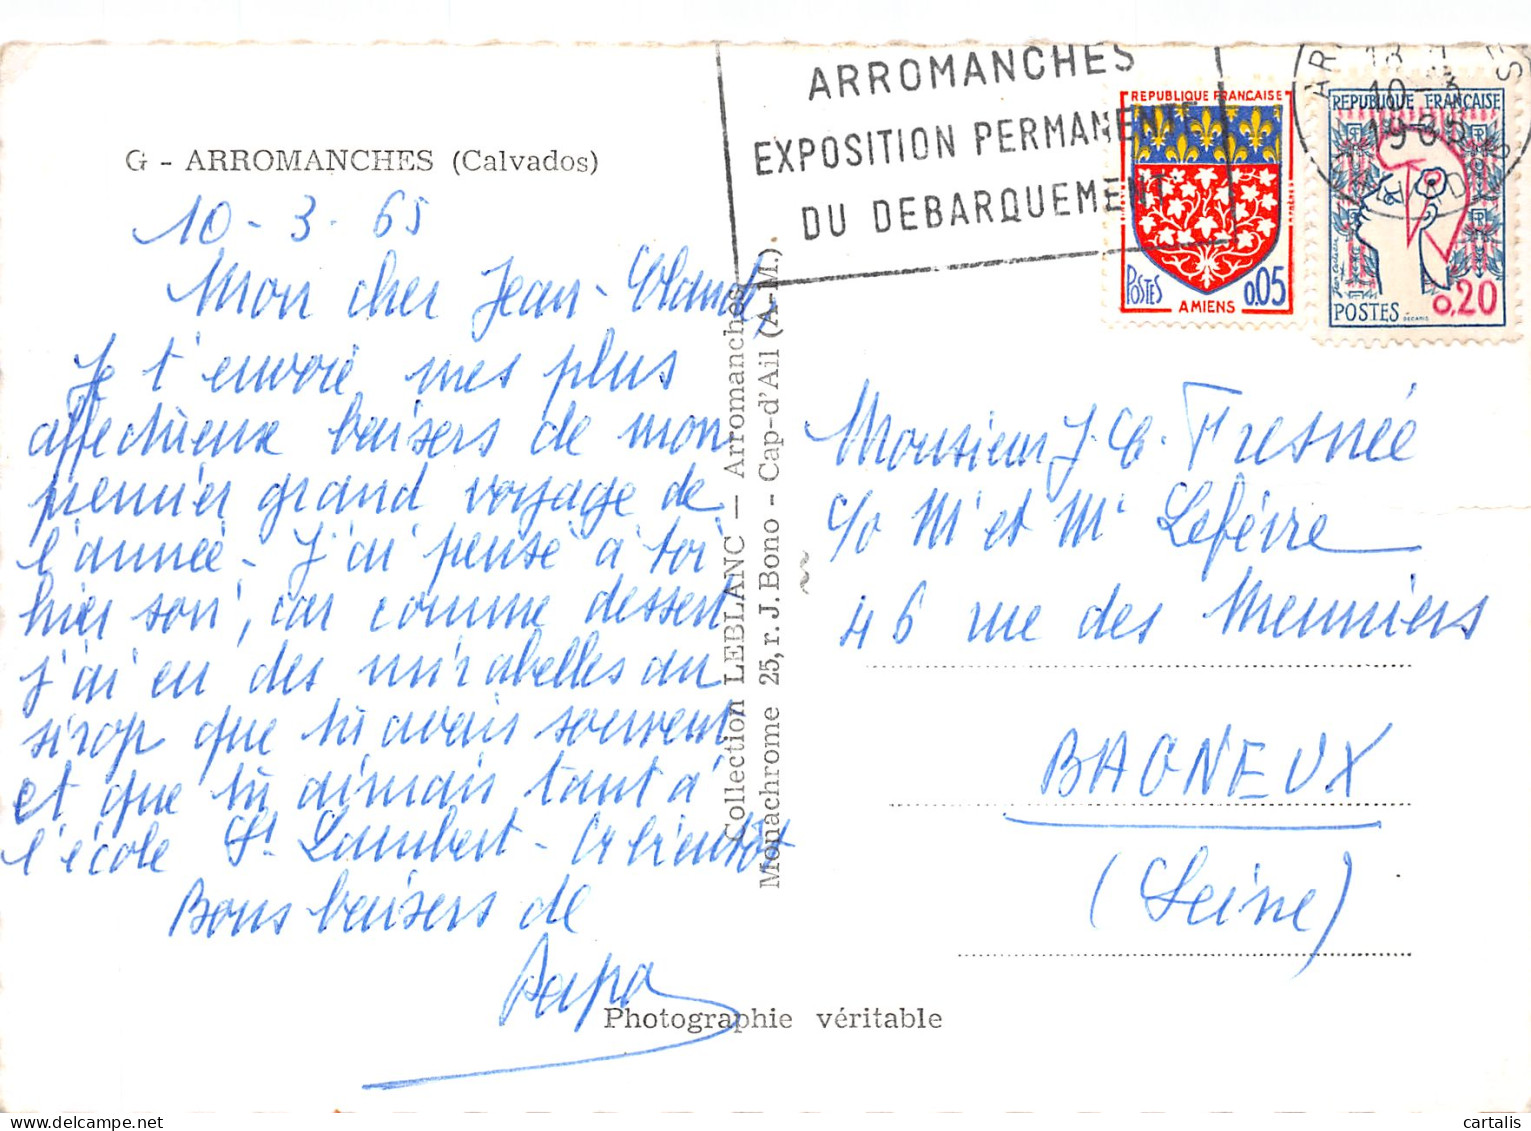 G - ARROMANCHES (Calvados)
10-3-65
Mon cher Jean-Claude,
Je t'envoie mes plus
affectueux baisers de mon
premier grand voyage de
l'année - J'ai pensé à toi
hier soir, car comme dessert
j'ai eu des mirabelles au
sirop que tu avais souvent
et que tu aimais tant à
l'école St Lambert - A bientôt
Bons baisers de
Papa
Photographie véritable
Collection LEBLANC — Arromanches
Monachrome 25, r. J. Bono - Cap-d'Ail (A.-M.)
ARROMANCHES
EXPOSITION PERMANENTE
DU DEBARQUEMENT
REPUBLIQUE FRANCAISE
POSTES
0,05
AMIENS
10-3
1965
REPUBLIQUE FRANÇAISE
POSTES
0,20
Monsieur J.C. Fresnée
c/o Mr et Me Lefévre
46 rue des Meuniers
BAGNEUX
(Seine)
cartalis